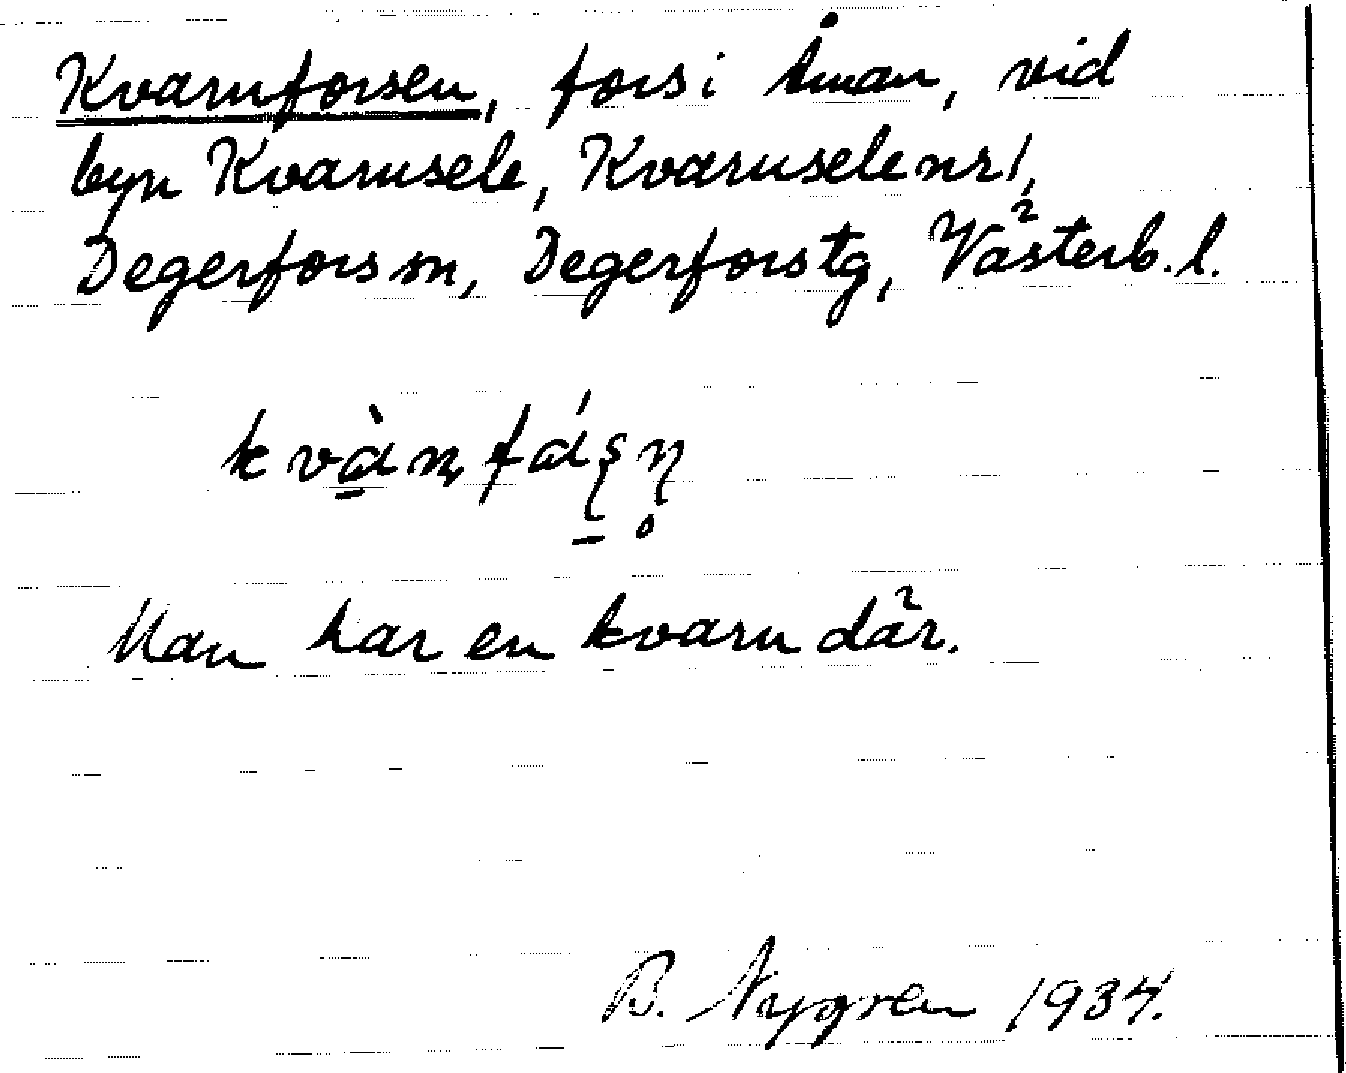 Kvarnforsen, fors i Åman, vid
byn Kvarnsele, Kvarnsele nr 1,
Degerfors sn, Degerfors tg, Västerb. l.
kvà̱ɳfáʂ̱ɳ̥
Man har en kvarn där.
B. Nygren 1934.